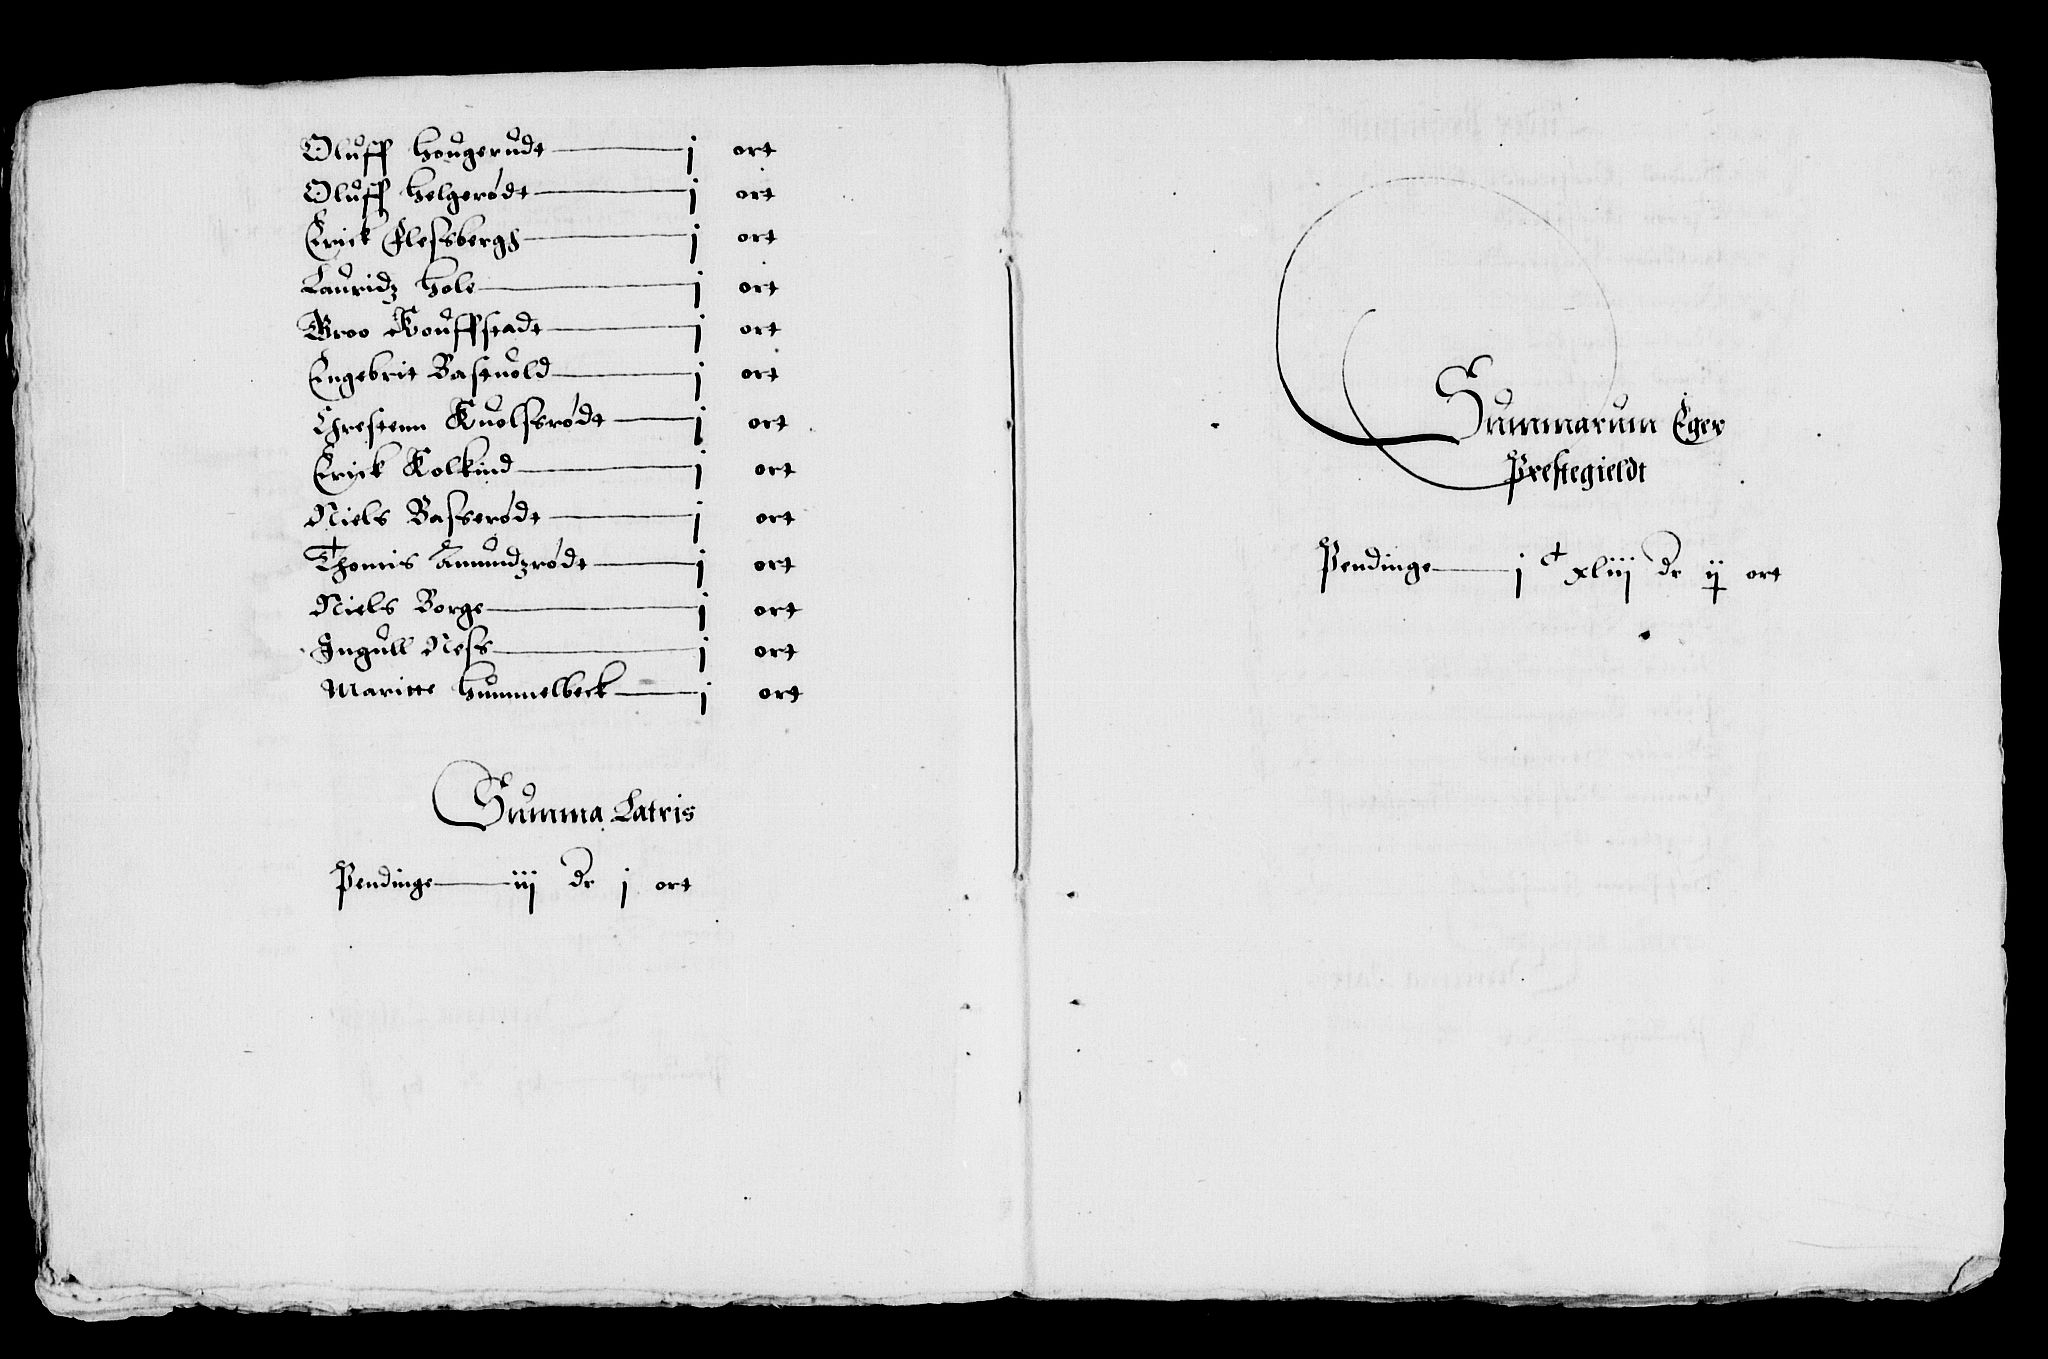 Oluff Hougerudt — j ort
Oluff Helgerødt — j ort
Erick Flessbergh — j ort
Lauridz Hole — j ort
Groo Kouffstadt — j ort
Engebrit Bastuold — j ort
Chrestenn Kuolssrødt — j ort
Erick Kolkind — j ort
Niels Basserødt — j ort
Thomis Amundzrødt — j ort
Niels Borge — j ort
Ingull Ness — j ort
Maritte Hummelbeck — j ort
Summa Latris
Pendinge — iij dr j ort
Summarum Eger
Prestegieldt
Pendinge — j c xliij dr ij ort